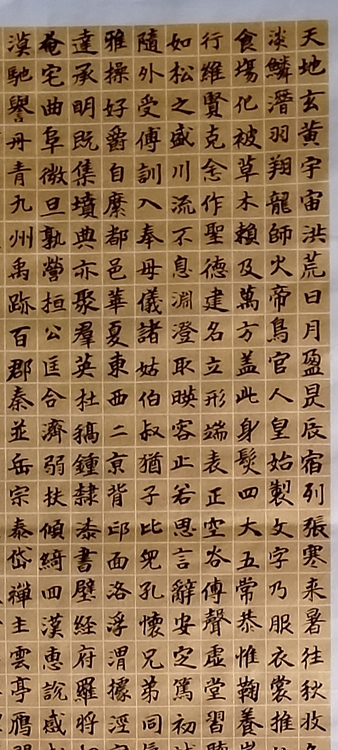 天地玄黄宇宙洪荒日月盈昃辰宿列張寒来暑往秋收
淡鱗潛羽翔龍師火帝鳥官人皇始製文字乃服衣裳推
食場化被草木賴及萬方盖此身髮四大五常恭惟鞠養
行維賢克念作聖德建名立形端表正空谷傳聲虛堂習
如松之盛川流不息淵澄取暎容止若思言辭安定篤初
隨外受傅訓入奉母儀諸姑伯叔猶子比兒孔懷兄弟同
雅操好爵自縻都邑華夏東西二京背邙面洛浮渭據涇
達承明既集墳典亦聚羣英杜稿鍾隸漆書壁経府羅将
奄宅曲阜微旦孰營桓公匡合濟弱扶傾綺回漢恵說感
漠馳譽丹青九州禹跡百郡秦並岳宗泰岱禪主雲亭鴈